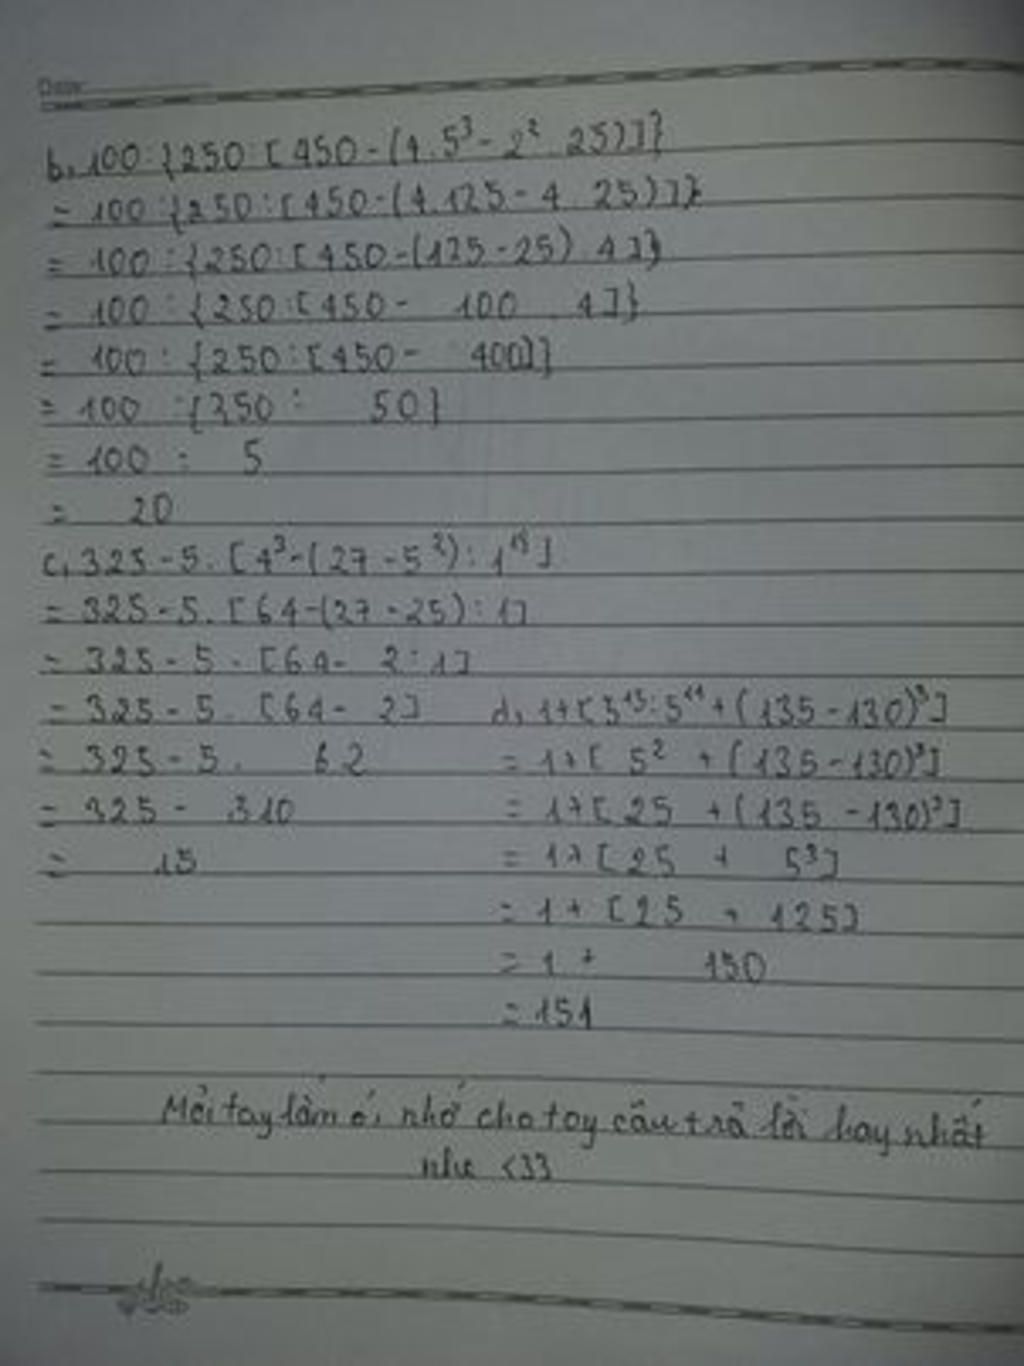 Date
b, 100 : {250 : [450 - (4.5³ - 2². 25)]}
= 100 : {250 : [450 - (4.125 - 4. 25)]}
= 100 : {250 : [450 - (125 - 25). 4]}
= 100 : {250 : [450 - 100 . 4]}
= 100 : {250 : [450 - 400]}
= 100 : {250 : 50}
= 100 : 5
= 20
c, 325 - 5. [4³ - (27 - 5²) : 1¹⁸]
= 325 - 5. [64 - (27 - 25) : 1]
= 325 - 5. [64 - 2 : 1]
= 325 - 5. [64 - 2]
= 325 - 5. 62
= 325 - 310
= 15
d, 1+[5¹³:5¹¹+(135-130)³]
= 1+[ 5² +(135-130)³]
= 1+[ 25 +(135-130)³]
= 1+[25 + 5³]
= 1+ [25 + 125]
= 1 + 150
= 151
Mỏi tay lắm ó, nhớ cho toy câu trả lời hay nhất
nhe <33